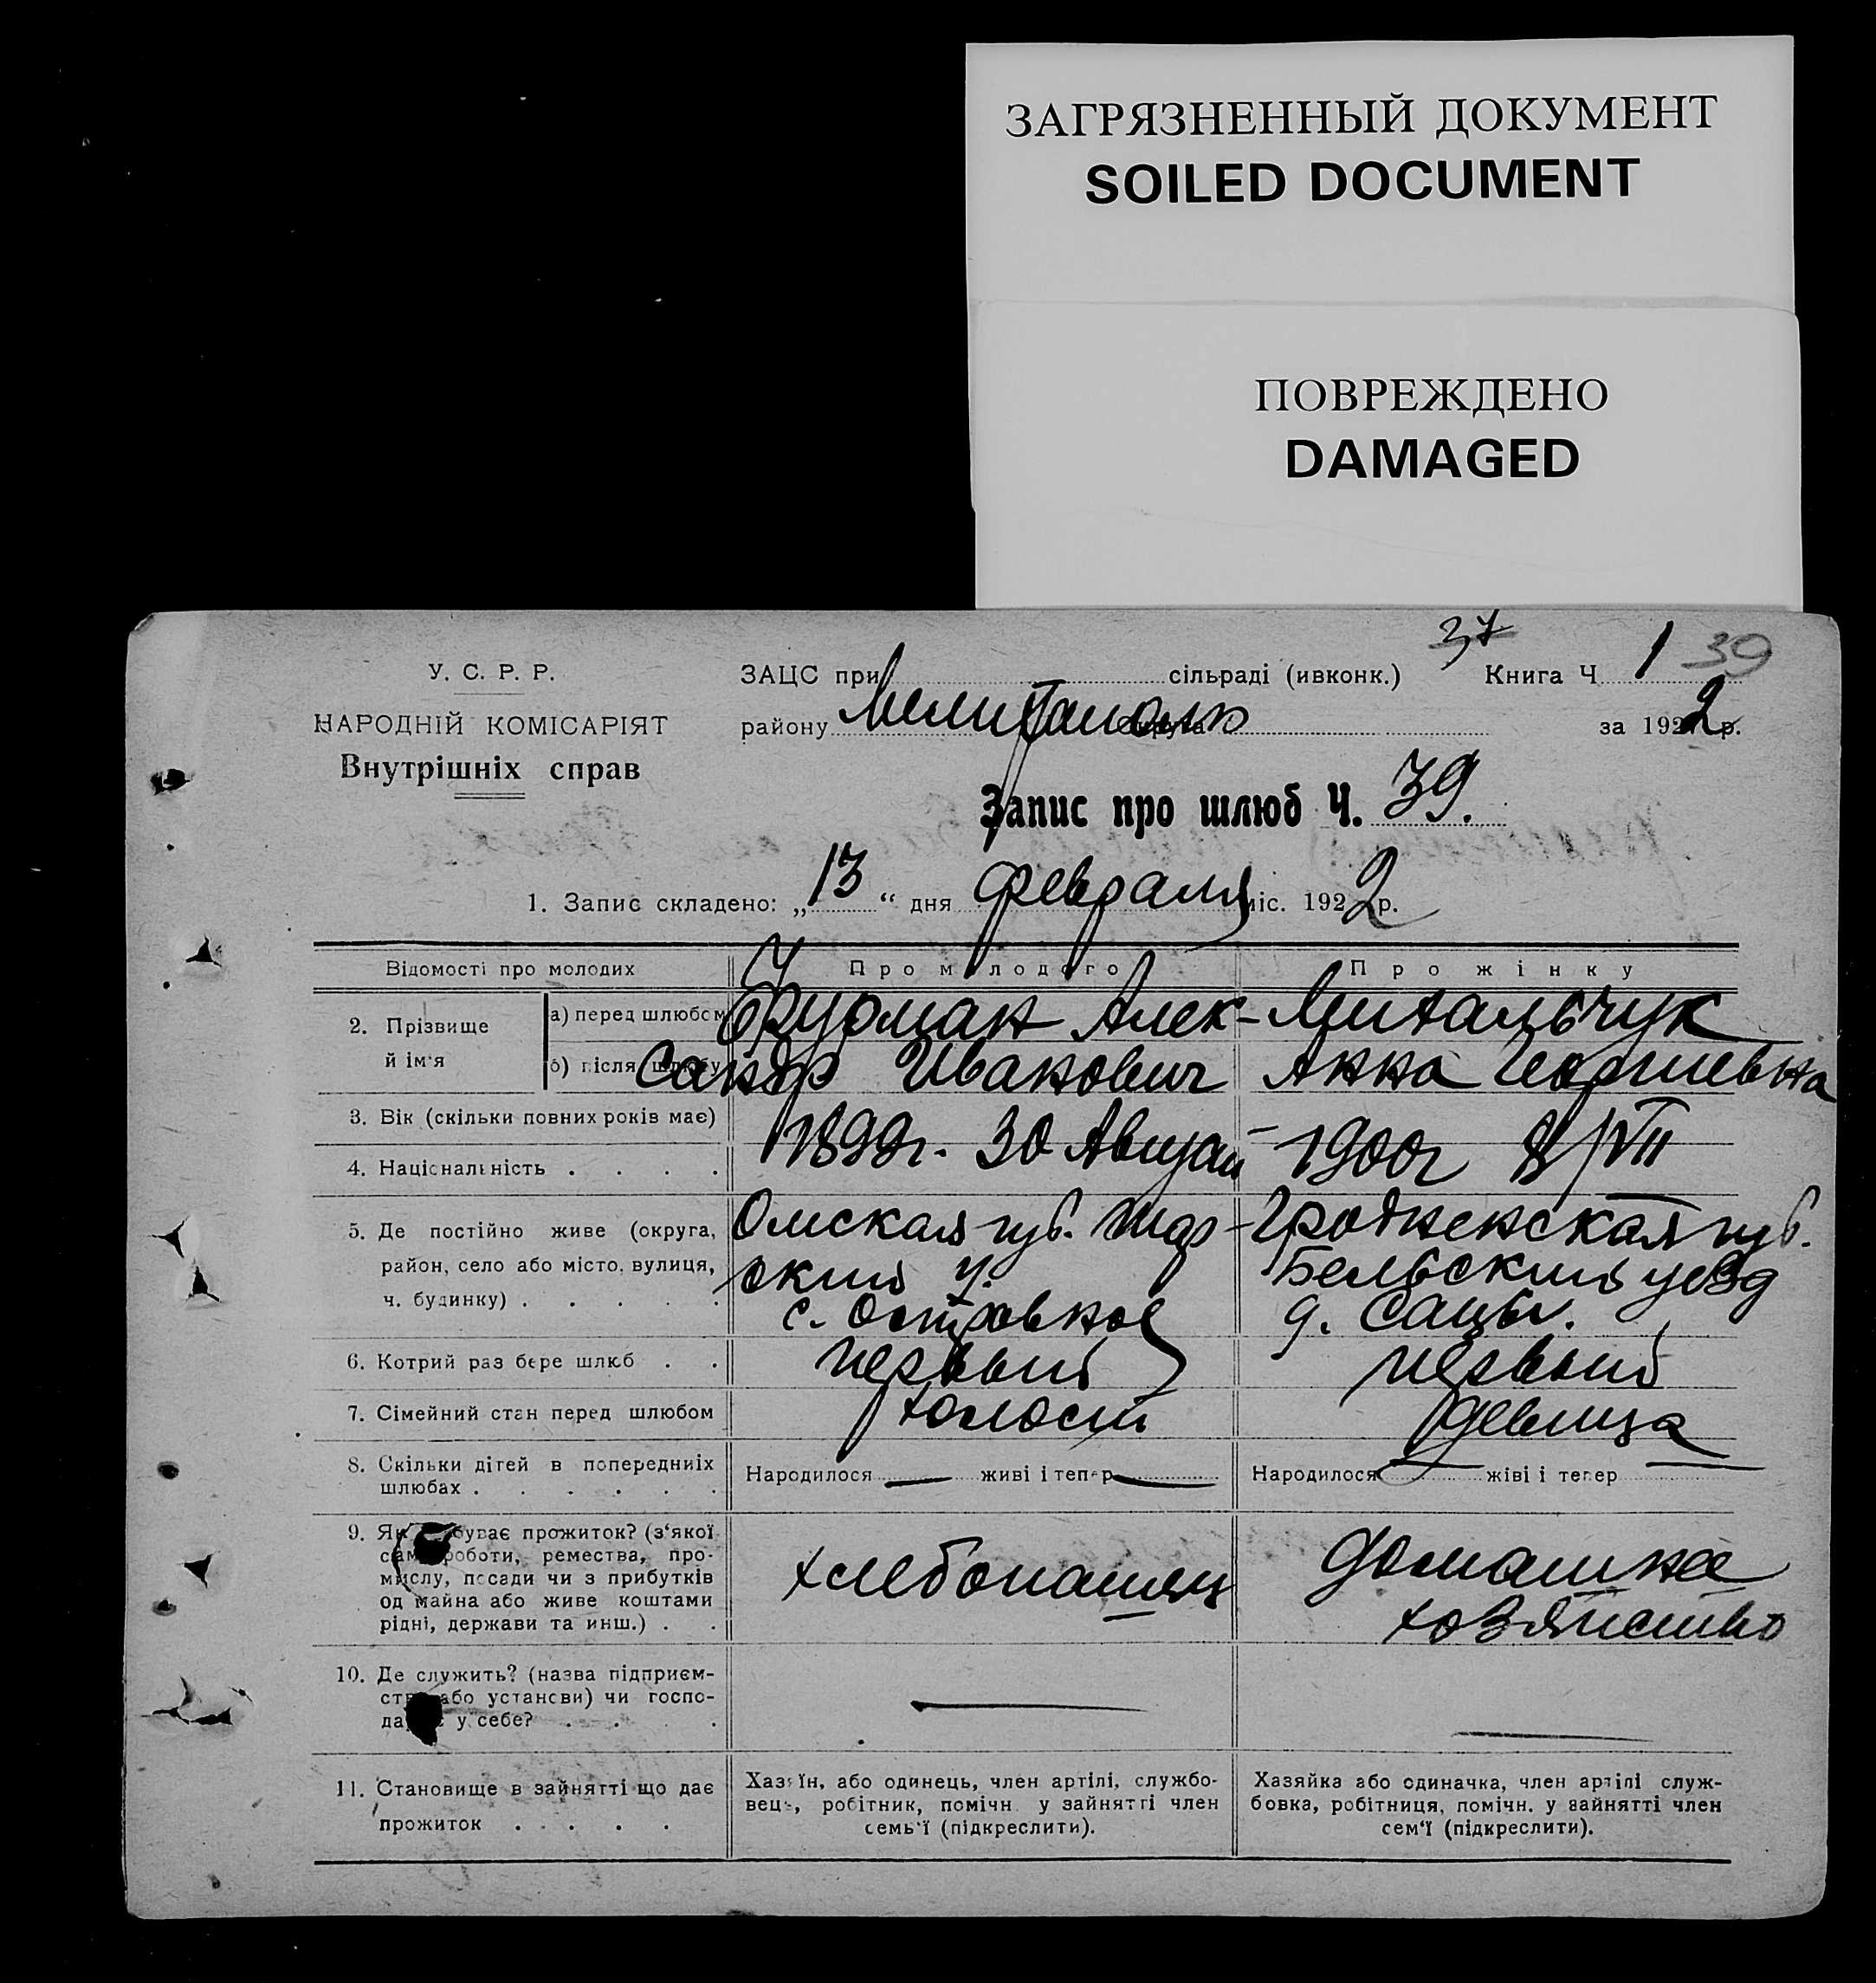 ЗАГРЯЗНЕННЫЙ ДОКУМЕНТ
SOILED DOCUMENT
ПОВРЕЖДЕНО
DAMAGED
37
У. С. Р. Р.
ЗАЦС при сільраді (ивконк.) Книга Ч. 1 39
НАРОДНІЙ КОМІСАРІЯТ
району Мелитополь округа за 1922 р.
Внутрішніх справ
Запис про шлюб Ч. 39.
1. Запис складено: „13“ дня февраля міс. 1922 р.
Відомості про молодих
Про молодого
Про жінку
2. Прізвище й ім'я
а) перед шлюбом
б) після шлюбу
Фурман Алек-
сандр Иванович
Михальчук
Анна Георгиевна
3. Вік (скільки повних років має)
4. Національність
1899г. 30 Август
1900г 8/VII
5. Де постійно живе (округа,
район, село або місто, вулиця,
ч. будинку)
Омская губ.
ский у.
с. Островное
Гродненская губ.
Бельский уезд
д. Сацы.
6. Котрий раз бере шлюб
первый
первый
7. Сімейний стан перед шлюбом
холост
девица
8. Скільки дітей в попередниіх
шлюбах
Народилося — живі і тепер —
Народилося — жіві і тепер —
9. Як буває прожиток? (з'якої
сам роботи, ремества, про-
мислу, посади чи з прибутків
од майна або живе коштами
рідні, держави та инш.)
хлебопашец
домашнее
хозяйство
10. Де служить? (назва підприєм-
ств або установи) чи госпо-
да є у себе?
—
—
11. Становище в зайнятті що дає
прожиток
Хазяїн, або одинець, член артілі, службо-
вець, робітник, помічн. у зайнятті член
семь'ї (підкреслити).
Хазяйка або одиначка, член артілі служ-
бовка, робітниця, помічн. у зайнятті член
сем'ї (підкреслити).